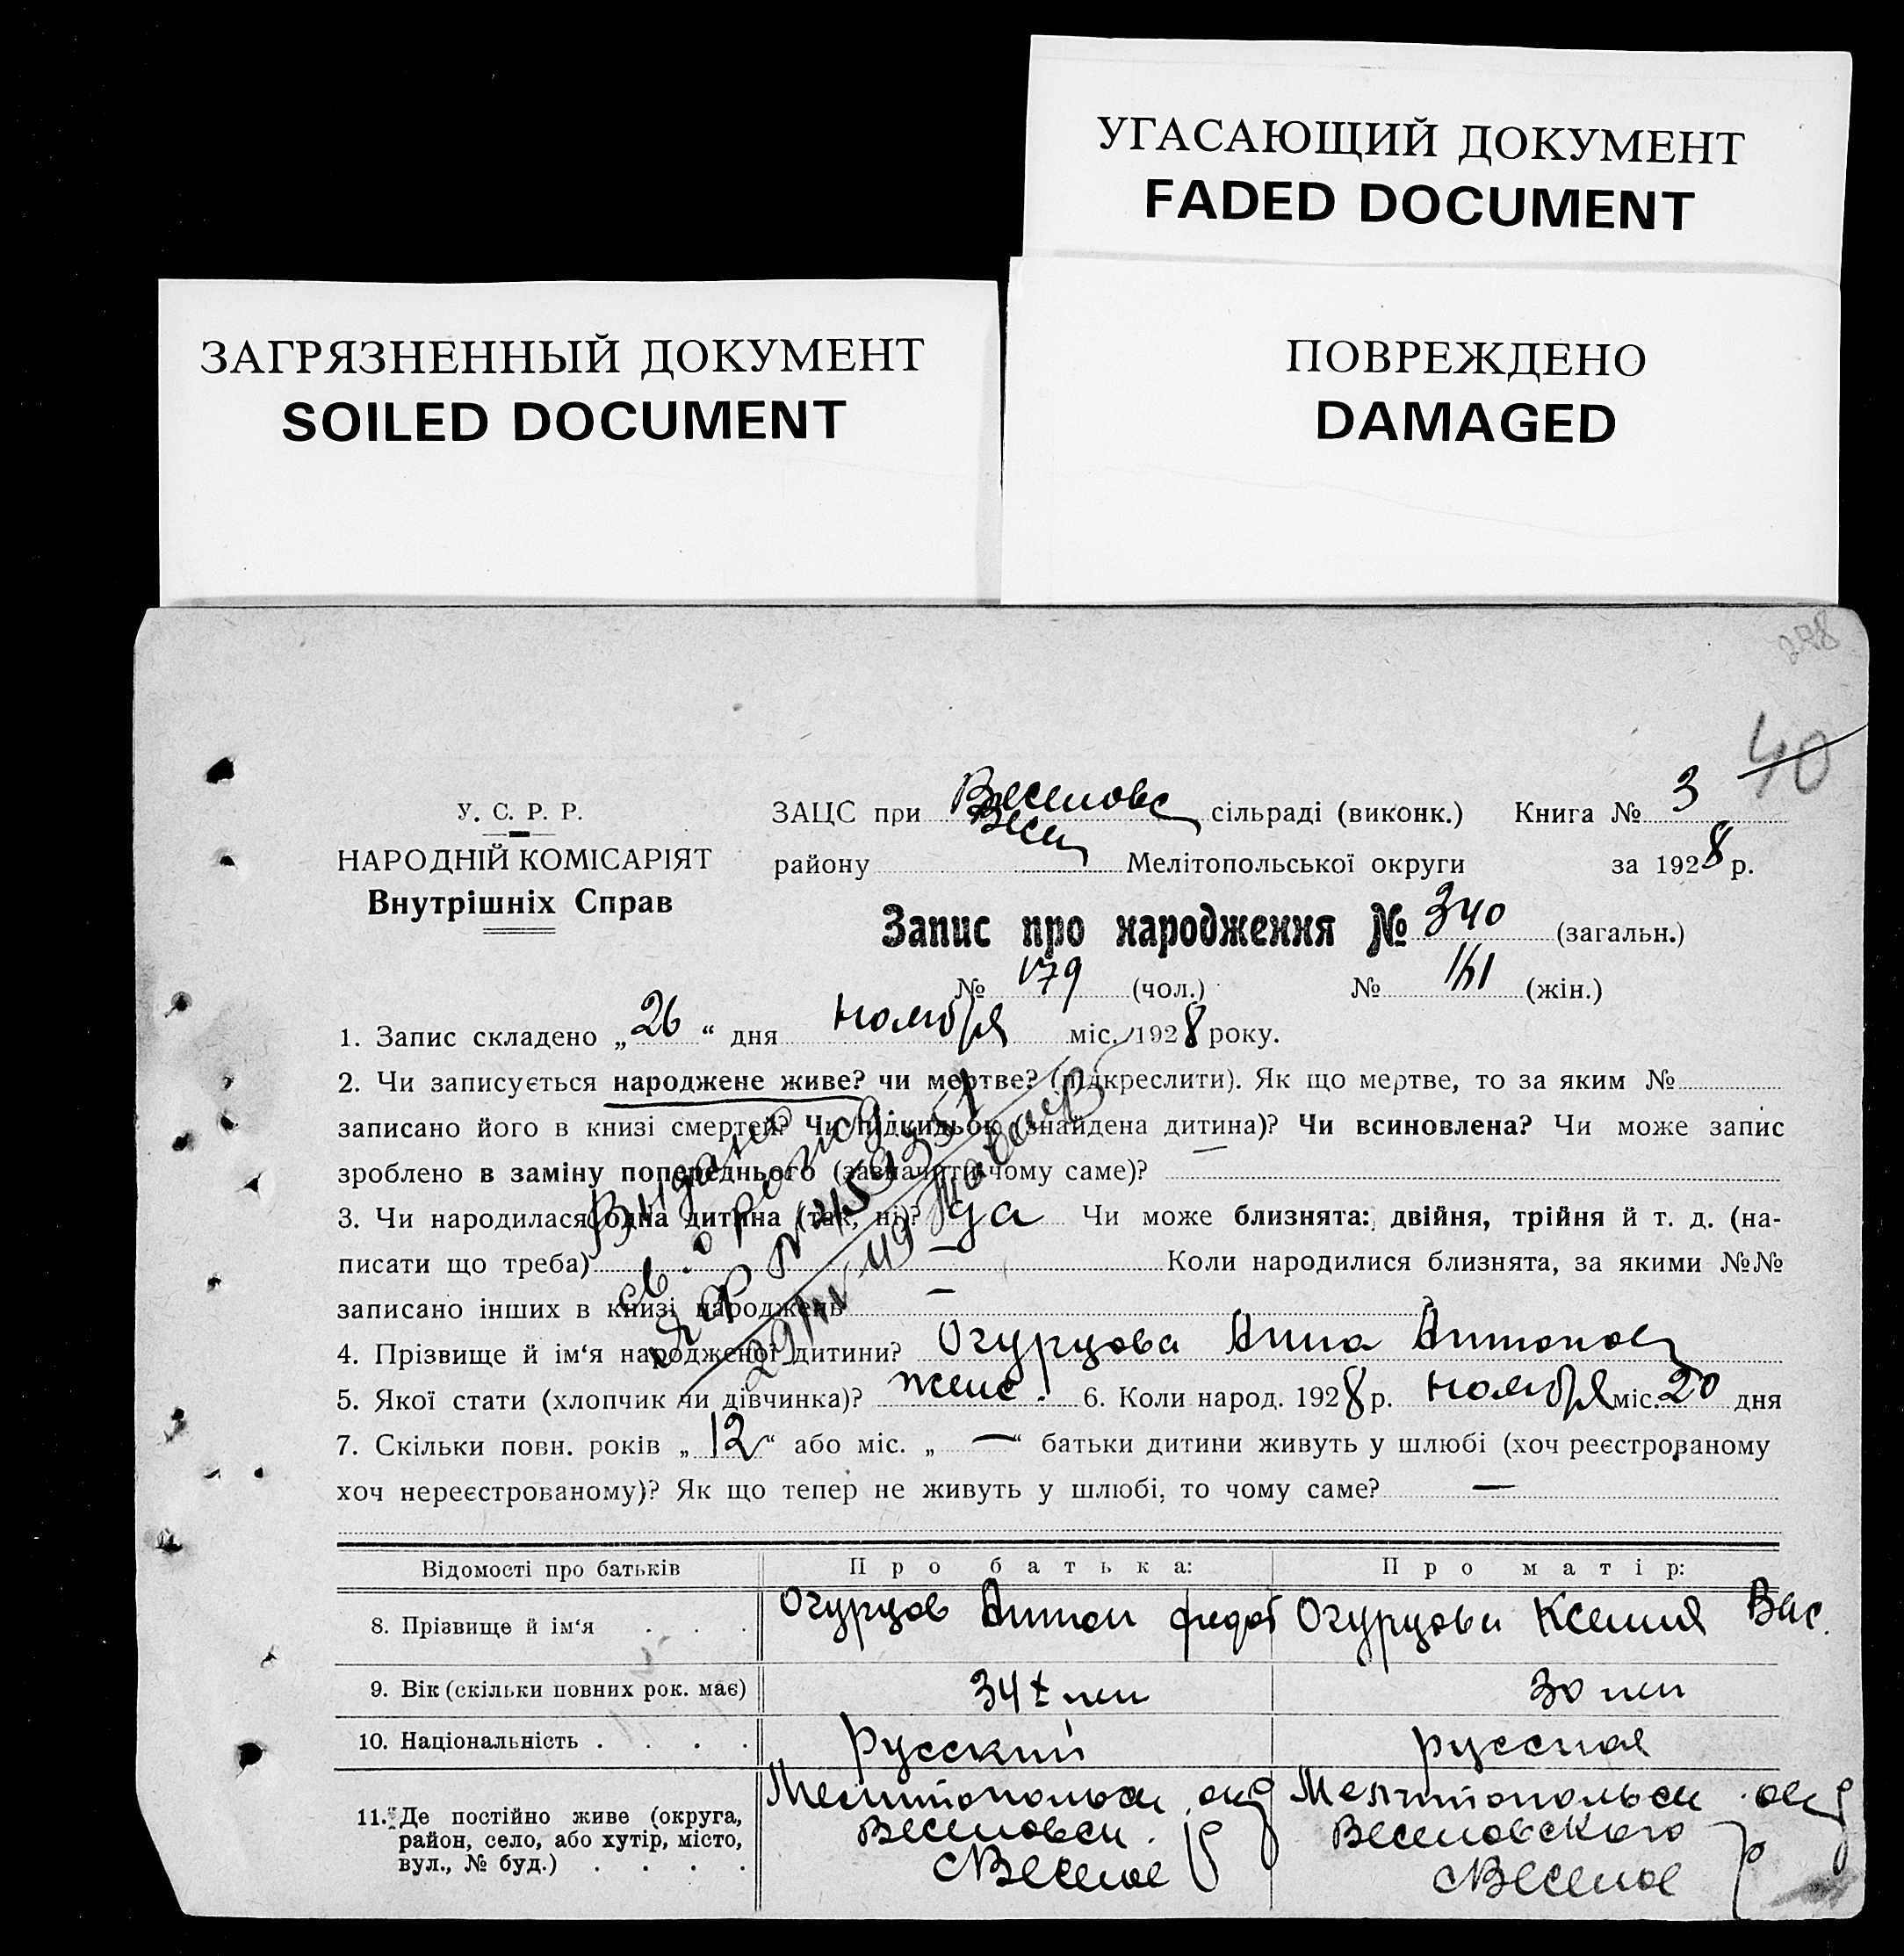 УГАСАЮЩИЙ ДОКУМЕНТ
FADED DOCUMENT
ЗАГРЯЗНЕННЫЙ ДОКУМЕНТ
SOILED DOCUMENT
ПОВРЕЖДЕНО
DAMAGED
298
40
У. С. Р. Р.
НАРОДНІЙ КОМІСАРІЯТ
Внутрішніх Справ
ЗАЦС при Веселовс сільраді (виконк.) Книга № 3
району Весел Мелітопольської округи за 1928 р.
Запис про народження № 340 (загальн.)
№ 179 (чол.) № 161 (жін.)
1. Запис складено „26“ дня ноября міс. 1928 року.
2. Чи записується народжене живе? чи мертве? (підкреслити). Як що мертве, то за яким №
записано його в книзі смертей? Чи підкидьою (знайдена дитина)? Чи всиновлена? Чи може запис
зроблено в заміну попереднього (зазначити чому саме)? —
3. Чи народилася одна дитина (так, ні)? да Чи може близнята: двійня, трійня й т. д. (на-
писати що треба) — Коли народилися близнята, за якими №№
записано інших в книзі народжень —
Выдано
св. о рожд
29 49
4. Прізвище й ім‘я народженої дитини? Огурцова Анна Антонов
5. Якої стати (хлопчик чи дівчинка)? женс. 6. Коли народ. 1928 р. ноября міс. 20 дня
7. Скільки повн. років „12“ або міс. „—“ батьки дитини живуть у шлюбі (хоч реєстрованому
хоч нереєстрованому)? Як що тепер не живуть у шлюбі, то чому саме? —
Відомості про батьків Про батька: Про матір:
8. Прізвище й ім‘я . . . Огурцов Антон федот Огурцова Ксения Вас.
9. Вік (скільки повних рок. має) 34 лет 30 лет
10. Національність . . . . Русский русская
11. Де постійно живе (округа, Мелитопольск. окр Мелитопольск. окр
район, село, або хутір, місто, Веселовск. р Веселовского р
вул., № буд.) . . . . с Веселое с Веселое